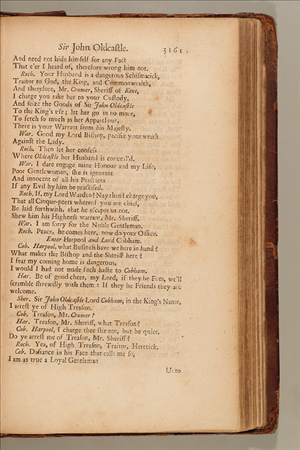 Sir John Oldcastle. 3161
And need not hide himself for any Fact
That e'er I heard of, therefore wrong him not.
Roch. Your Husband is a dangerous Schismatick,
Traitor to God, the King, and Commonwealth,
And therefore, Mr. Cromer, Sheriff of Kent,
I charge you take her to your Custody,
And seize the Goods of Sir John Oldcastle
To the King's use; let her go in no more,
To fetch so much as her Apparel out,
There is your Warrant from his Majesty.
War. Good my Lord Bishop, pacifie your wrath
Against the Lady.
Roch. Then let her confess
Where Oldcastle her Husband is conceal'd.
War. I dare engage mine Honour and my Life,
Poor Gentlewoman, she is ignorant
And innocent of all his Practices
If any Evil by him be practised.
Roch. If, my Lord Warden? Nay then I charge you,
That all Cinque-ports whereof you are chief,
Be laid forthwith, that he escapes us not.
Shew him his Highness warrant, Mr. Sheriff.
War. I am sorry for the Noble Gentleman.
Roch. Peace, he comes here, now do your Office.
Enter Harpool and Lord Cobham.
Cob. Harpool, what Business have we here in hand?
What makes the Bishop and the Sheriff here?
I fear my coming home is dangerous,
I would I had not made such haste to Cobham.
Har. Be of good cheer, my Lord, if they be Foes, we'll
scramble shrewdly with them: If they be Friends they are
welcome.
Sher. Sir John Oldcastle Lord Cobham, in the King's Name,
I arrest ye of High Treason.
Cob. Treason, Mr. Cromer?
Har. Treason, Mr. Sherriff, what Treason?
Cob. Harpool, I charge thee stir not, but be quiet.
Do ye arrest me of Treason, Mr. Sheriff?
Roch. Yea, of High Treason, Traitor, Heretick.
Cob. Defiance in his Face that calls me so,
I am as true a Loyal Gentleman